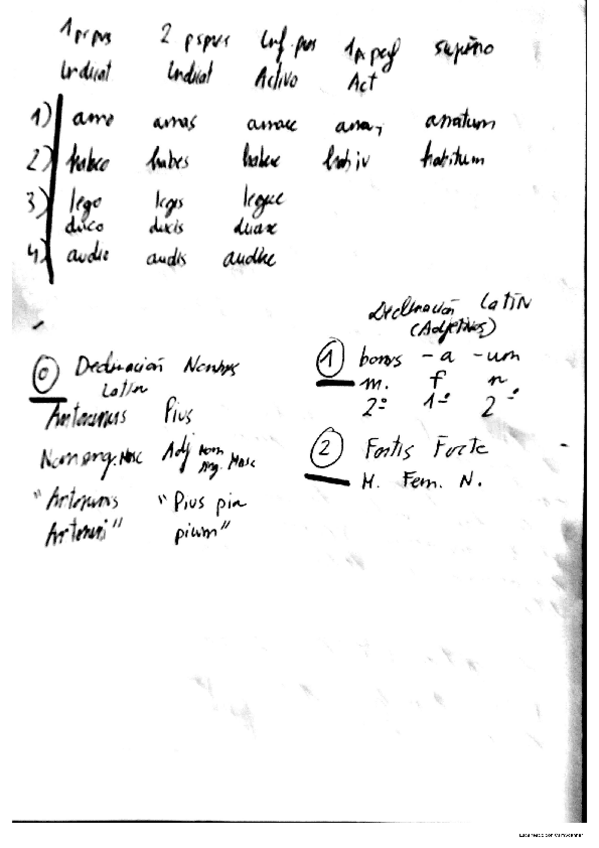 1 pr pres 2 ps pres Inf. pres 1 ps perf supino
Indicat Indicat Activo Act
1) amo amas amare amavi amatum
2) habeo habes habere habiv habitum
3) lego legis legere
duco ducis
4) audio audis audire
Declinación Latín
(Adjetivos)
0 Declinación Nombres
Latin
Antoninus Pius
Nom sing. Masc Adj Nom
sing. Masc
"Antoninus "Pius pia
Antonini" pium"
1 bonus -a -um
m. f n
2ª 1ª 2ª
2 Fortis Forte
M. Fem. N.